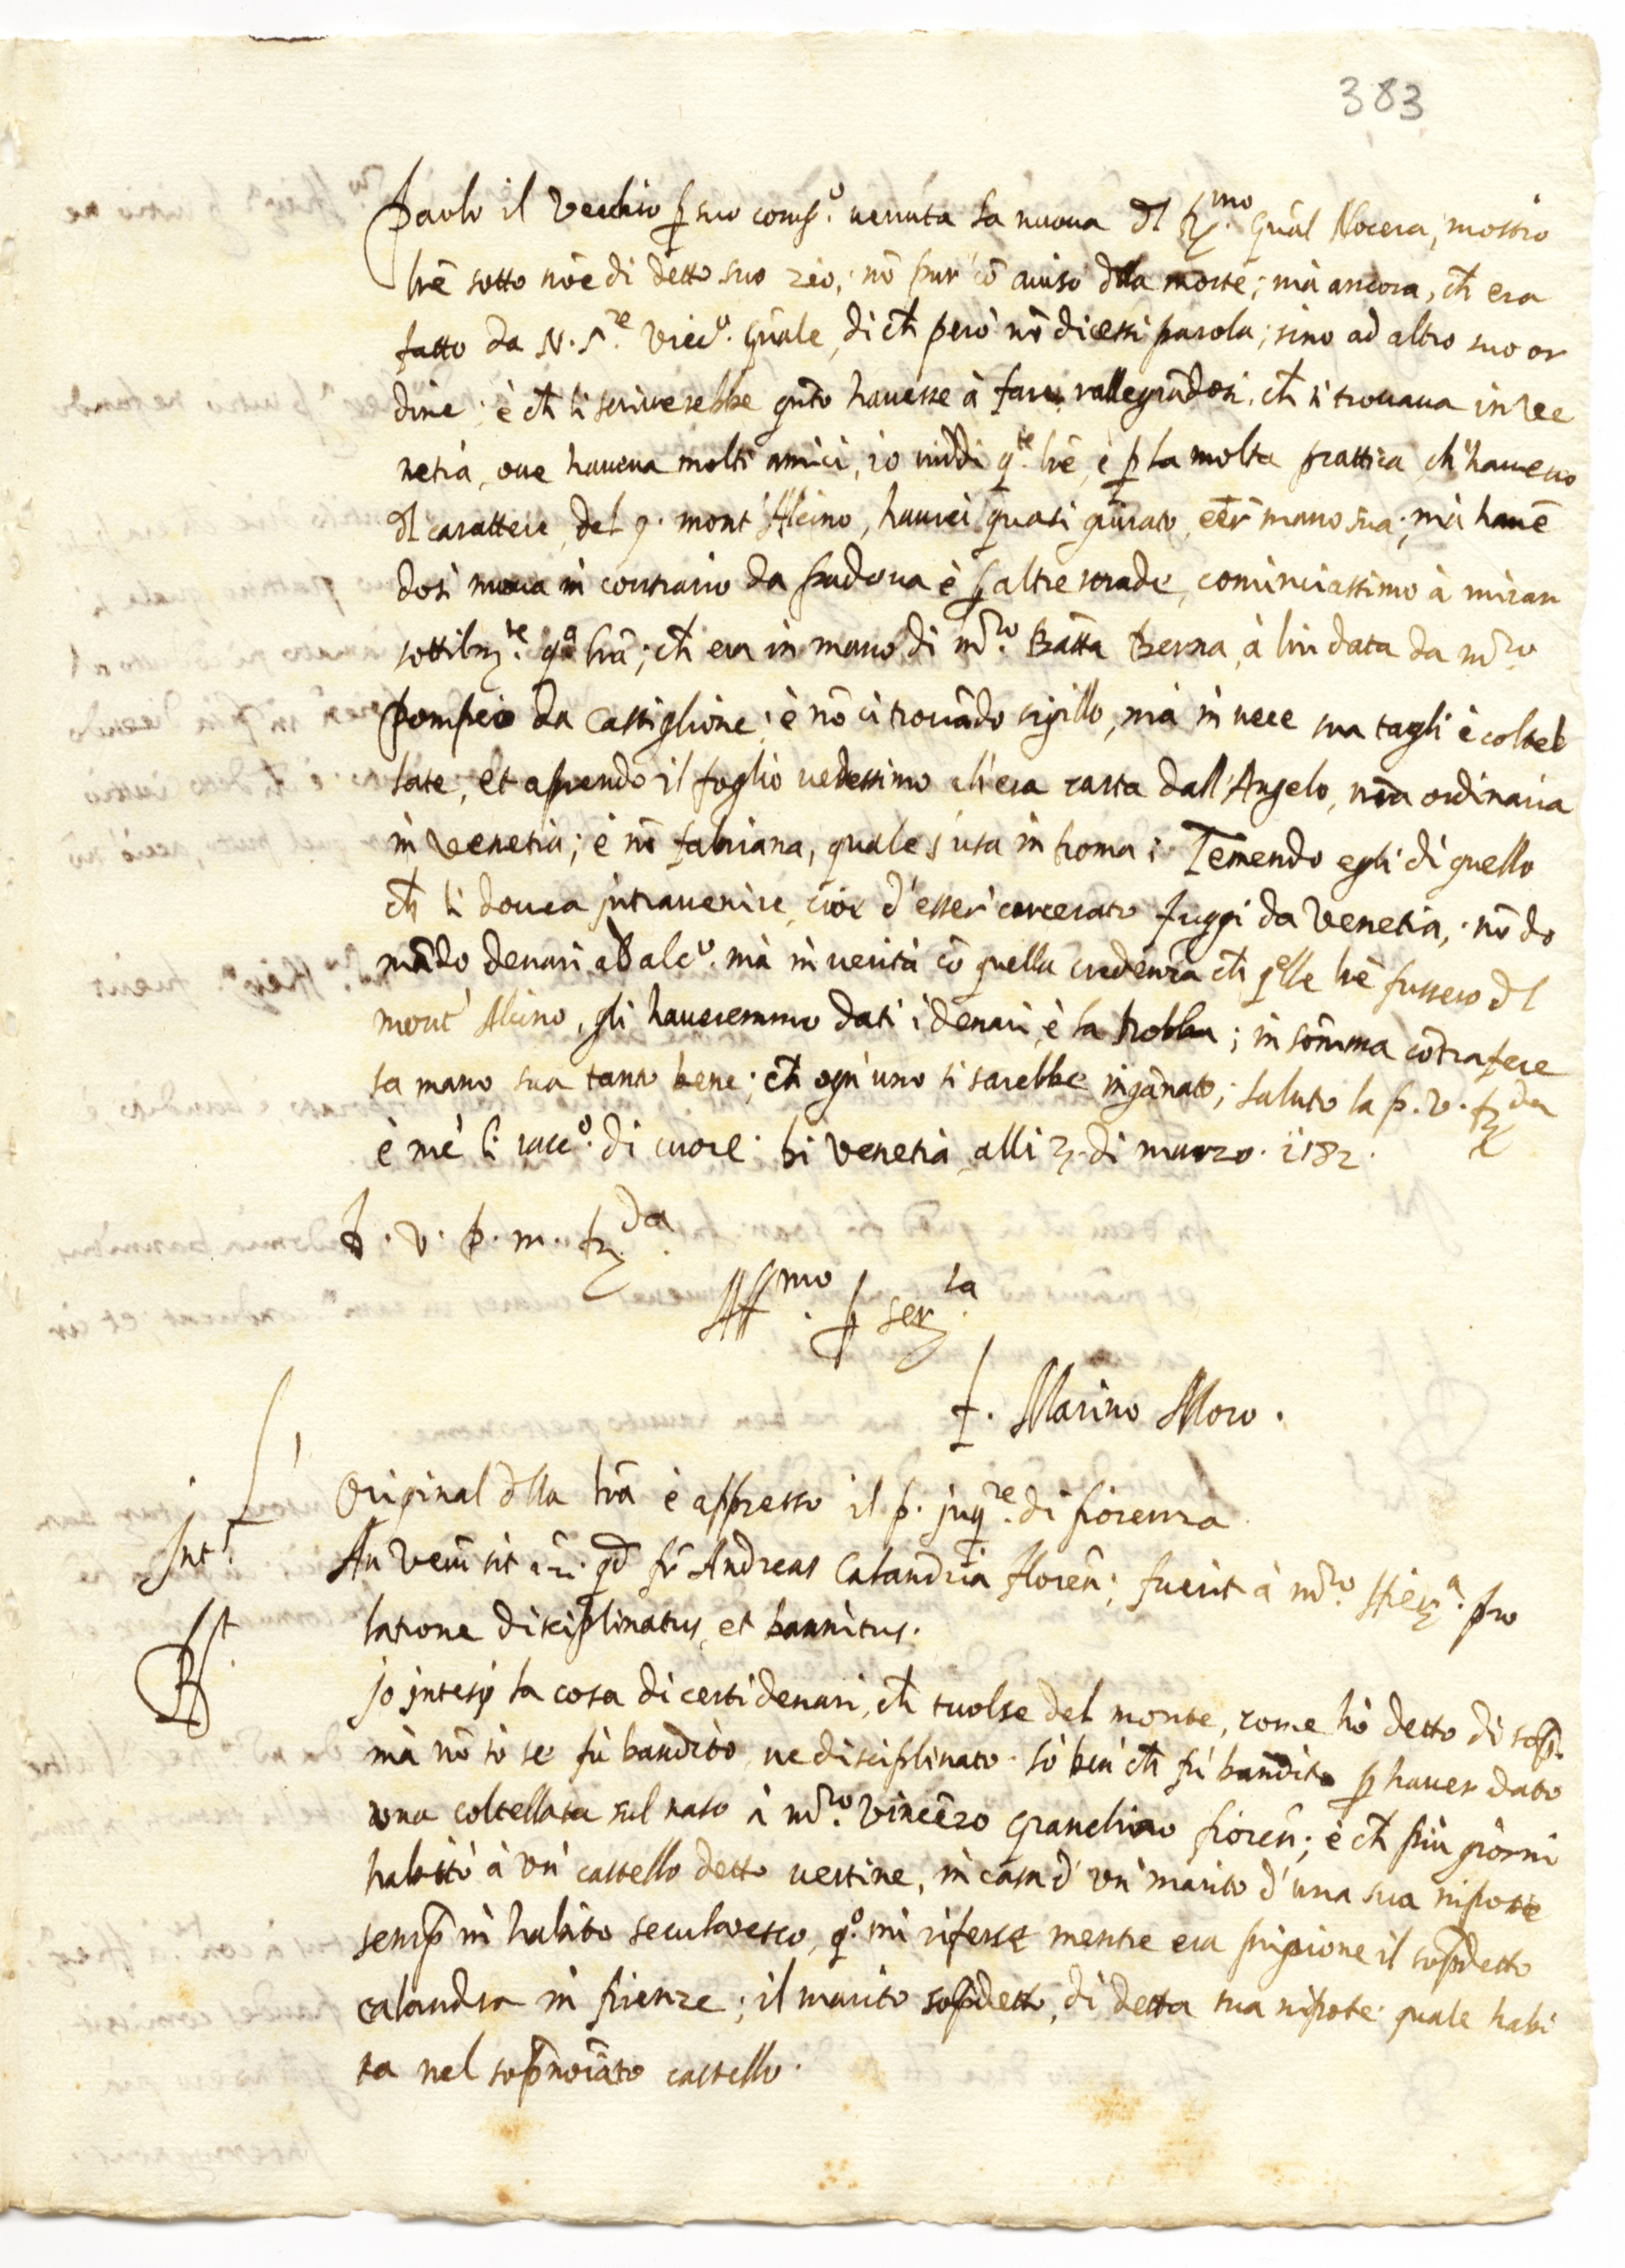 383
Paolo il Vecchio p suo comp.º venuta la nuova dl R.mo Gnãl Nocera, mostrò
lrẽ sotto nõe di detto suo zio, nõ pur cõ aviso dlla morte; mà ancora, ch̃ era
fatto da N. S.re Vicº. Gñale, di ch̃ però nõ dicessi parola; sino ad altro suo or
dine; è ch̃ li scriverebbe qñto havesse à fare, rallegrãdosi, ch̃ si trovava in Ve
netia, ove haveva molti amici, io viddi q.te lrẽ, è p la molta prattica ch'havevo
dl carattere, del q. mont'Alcino, haurei quasi giurato, eẽr mano sua; mà havẽ
dosi nuova in contrario da Padova è p altre strade, cominciassimo à mirar
sottilm.te q.a lrã; ch̃ era in mano di m.ro Batta Berna, à lui data da m.ro
Pompeio da Castiglione; è nõ ci trovãdo sigillo, mà in vece sua tagli è coltel
late, et aprendo il foglio vedessimo ch'era carta dall'Angelo, nr̃a ordinaria
in Venetia; è nõ fabriana, quale s'usa in Roma; Temendo egli di quello
ch̃ li dovea intravenire, cioè d'esser carcerato fuggi da Venetia, nõ do
mãdo denari ad alcº. mà in verità cõ quella credenza ch̃ qlle lrẽ fussero dl
mont'Alcino, gli haveremmo dati i denari, è la robba; in sõmma cõtrafece
la mano sua tanto bene; ch̃ ogn'uno si sarebbe ingãnato; saluto la P. V. R.da
è me li racc.º di cuore. Di Venetia alli 3. di marzo. 1582.
D. V. P. m. R.da
Aff.mo p ser.la
f. Marino Moro.
L'
Original dlla lrã è appresso il P. Inq.re di Fiorenza
Int.t
An verũ sit qd fr̃ Andreas Calandria floreñ; fuerit à m.ro Hier.a pro
latione disciplinatus, et bannitus.
R.t
Io intesi la cosa di certi denari, ch̃ tuolse del monte, come hò detto di sop.
mà nõ sò se fù bandito, ne disciplinato. sò ben ch̃ fù bandito p haver dato
una coltellata sul naso à m.ro Vincẽzo Granchino fioreñ; è ch̃ più giorni
habitò à un' castello detto vertine, in casa d'un marito d'una sua nipote
semp in habito secularesco, q.º mi riferse mentre era prigione il sopdetto
calandra in firenze; il marito sopdetto, di detta sua nipote quale habi
ta nel sopnoĩato castello.